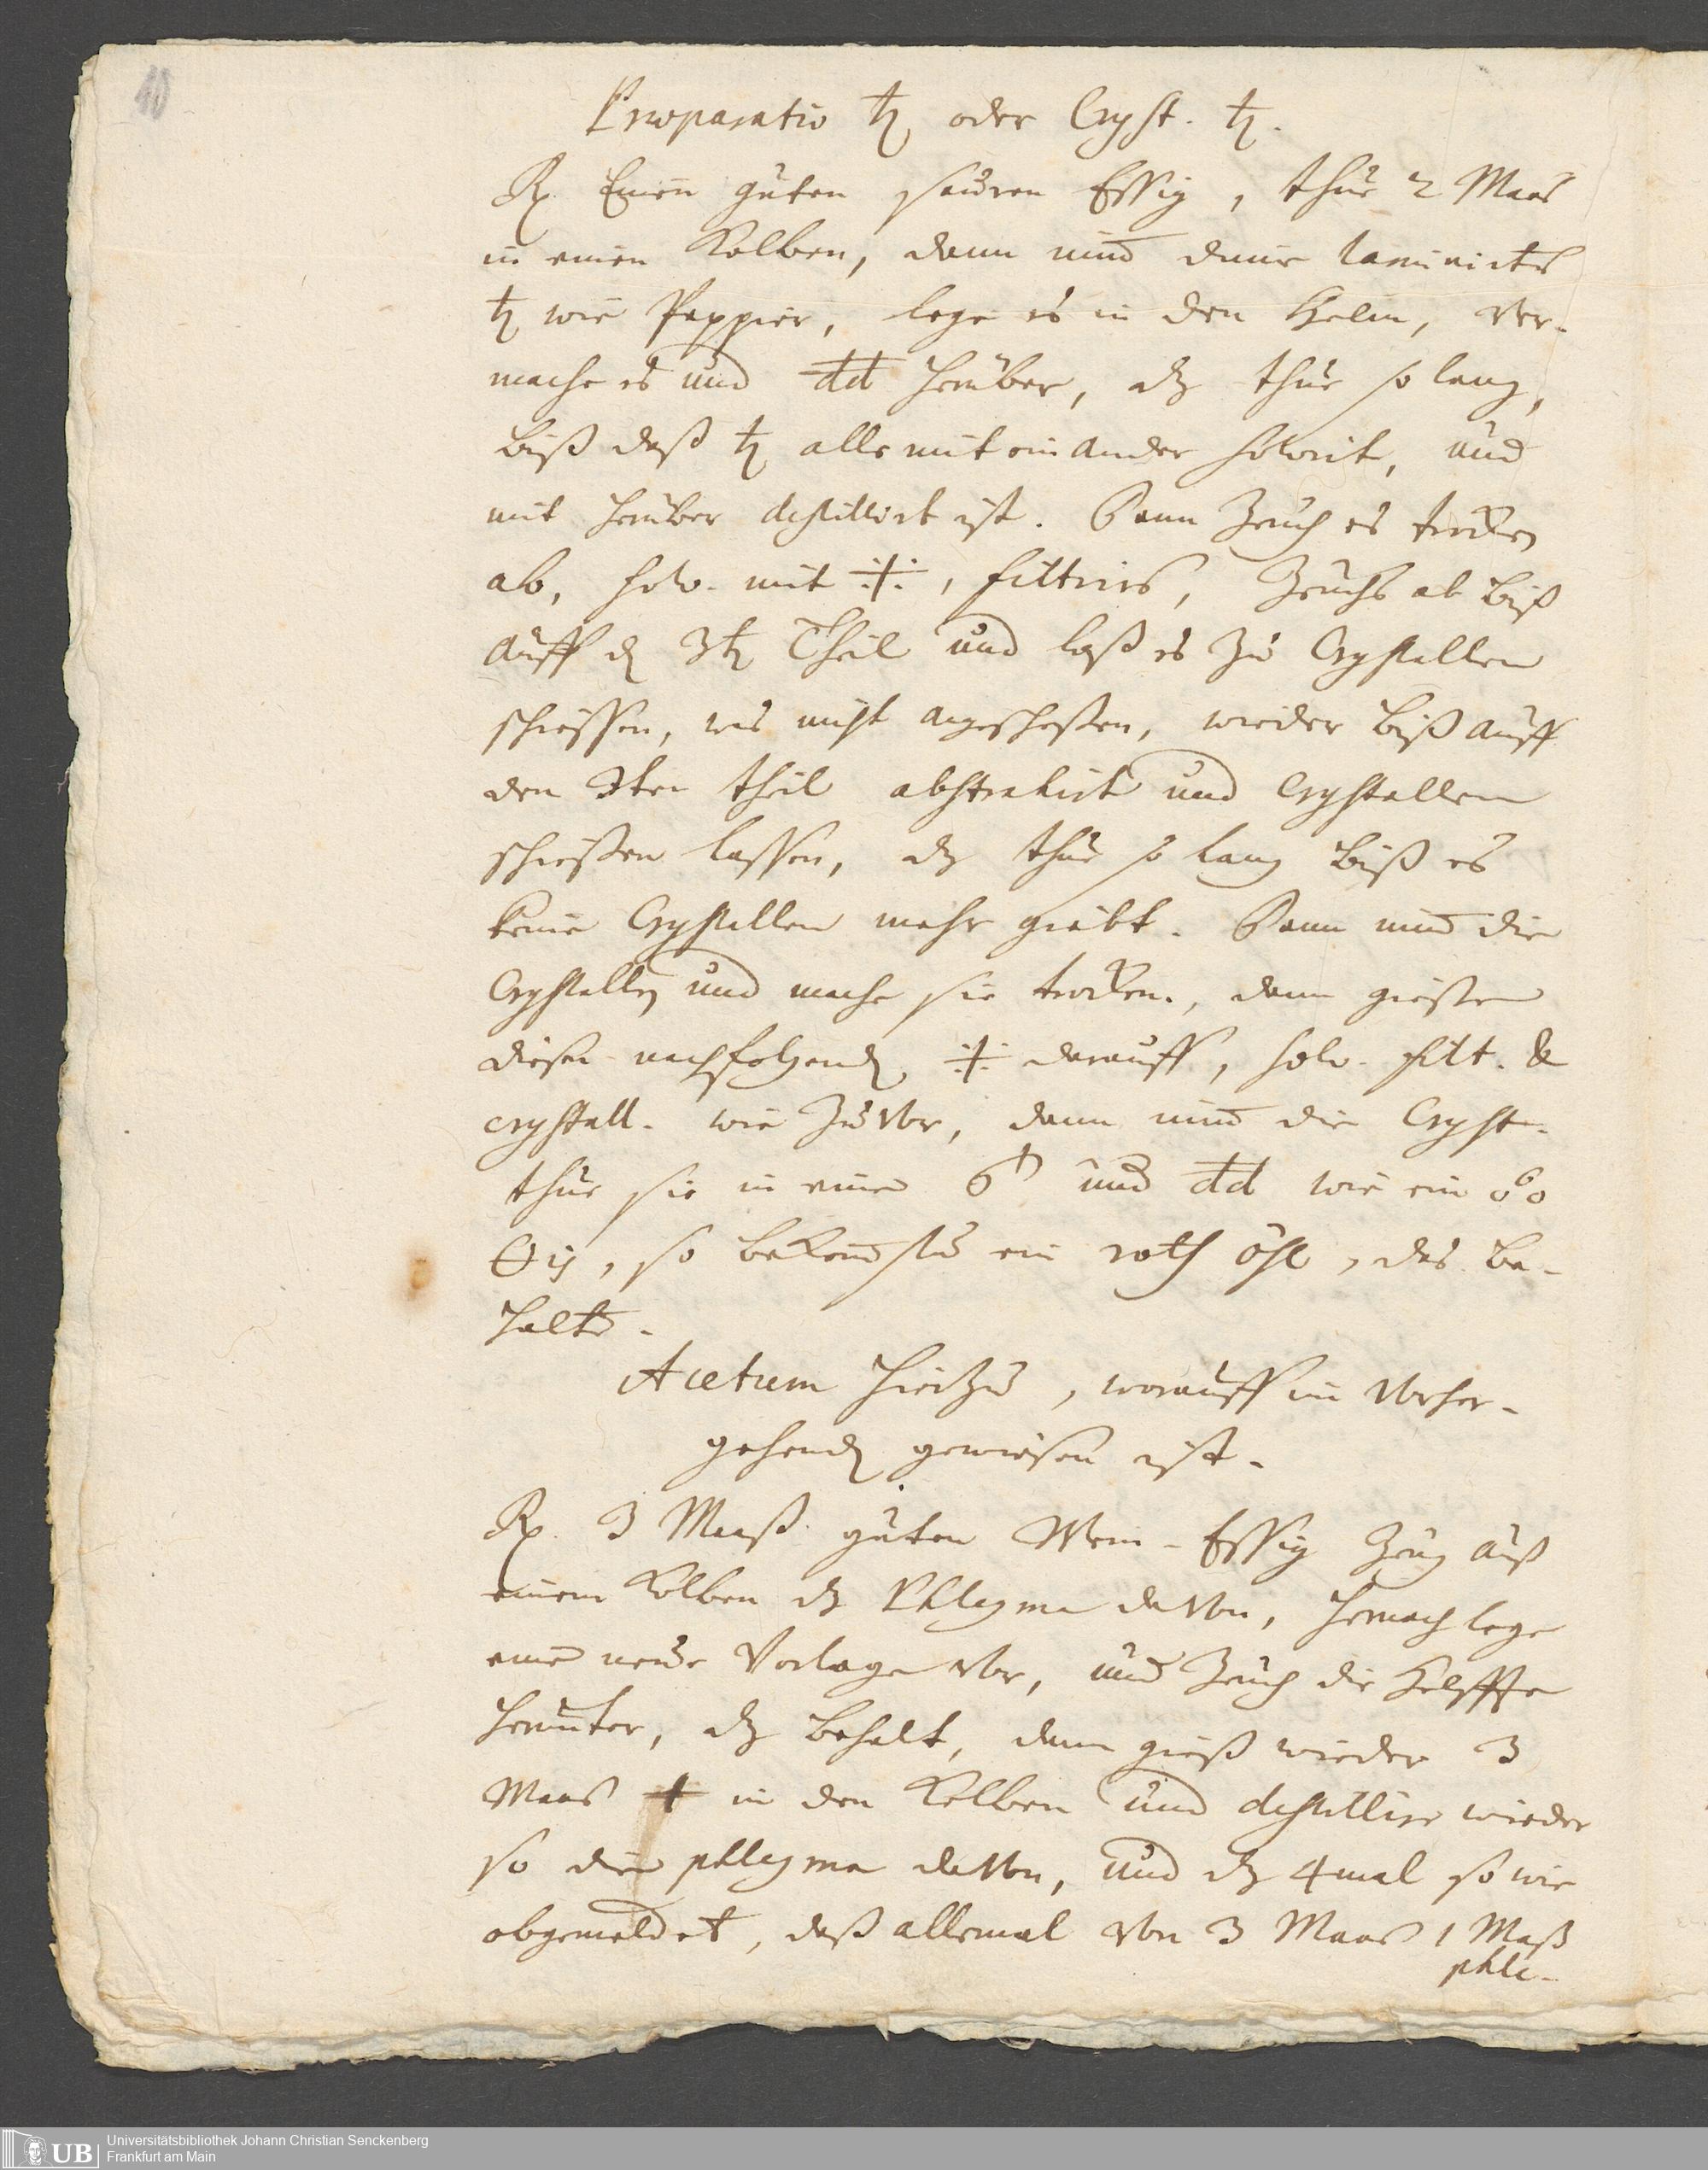 40
Præparatio ♄ oder Cryst. ♄.
℞. Einen guten sauren Essig, thue 2 Maas
in einen Kolben, dann nim̄ dünn laminirtes
♄ wie Pappier, lege es in den Helm, ver-
mache es und dd herüber, dz thue so lang,
biß daß ♄ alle mit einander solvirt, und
mit herüber destillirt ist. Dann zeuch es trocken
ab, solv. mit ·/·, filtrirs, zeuchs ab biß
auff den 3ten Theil und laß es zu Crystallen
schiessen, was nicht angeschoßen, wieder biß auff
den 3ten theil abstrahirt und Crystallen
schießen lassen, dz thue so lang biß es
keine Crystallen mehr giebt. Dann nim̄ die
Crystallen und mache sie trocken, dann gieße
diesen nachfolgenden ·/· darauff, solv. filt. &
crystall. wie zuvor, dann nim̄ die Cryst.
thue sie in eine und dd wie ein
so bekom̄stu ein roth öhl, das be-
halte.
Acetum hierzu, worauff im vorher-
gehenden gewiesen ist.
℞. 3 Maaß guten Wein-Essig zeug auß
einem Kolben dz Phlegma davon, hernach lege
eine neue Vorlage vor, und zeuch die Helffte
herunter, dz behalt, dann gieß wieder 3
Maas + in den Kolben und destillire wieder
so die phlegma davon, und dz 4mal so wie
obgemeldet, daß allemal von 3 Maas 1 Maß
phle-
UB
Universitätsbibliothek Johann Christian Senckenberg
Frankfurt am Main